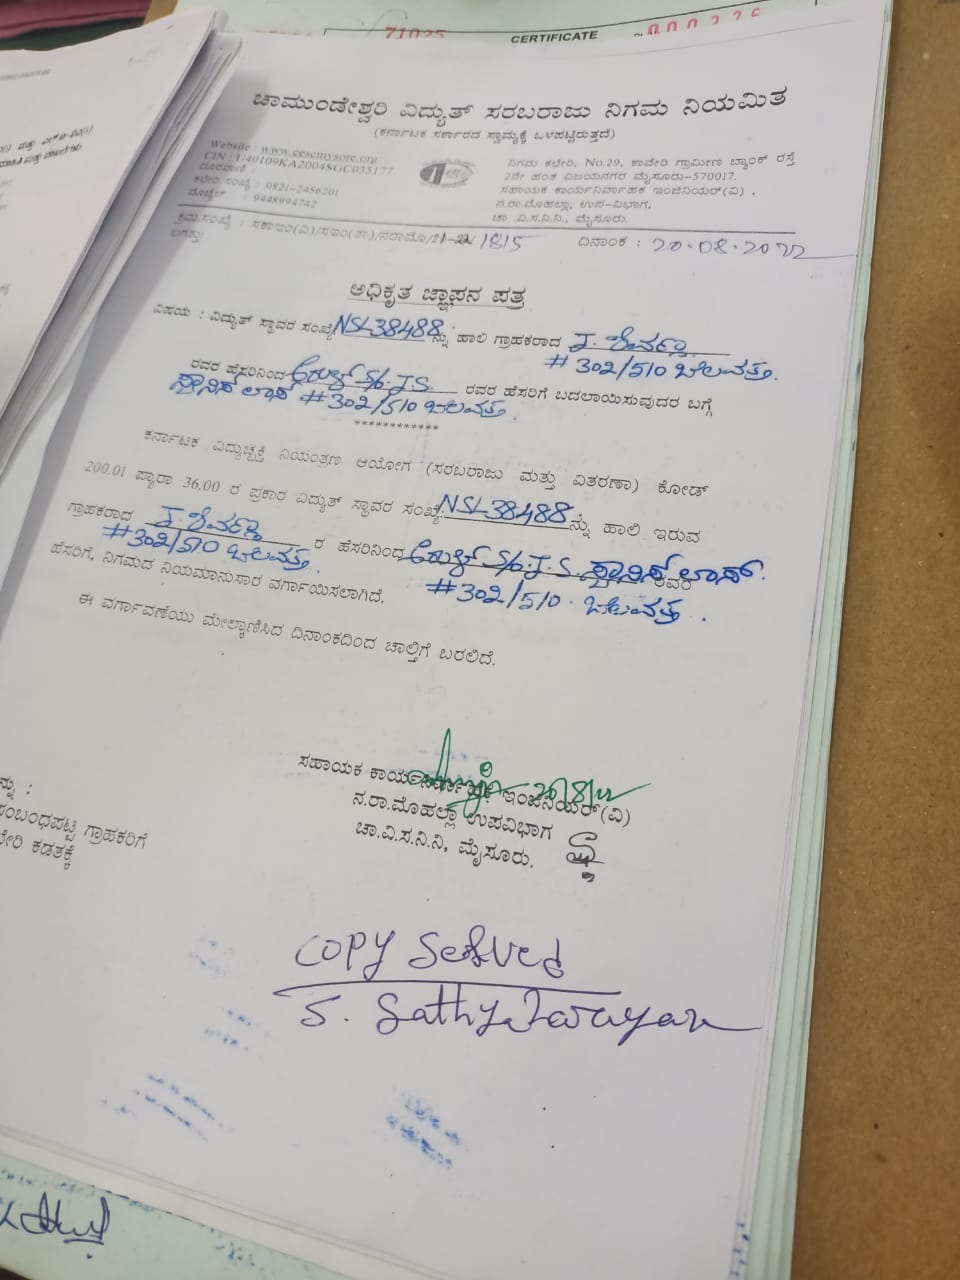 71025
CERTIFICATE
ಚಾಮುಂಡೇಶ್ವರಿ ವಿದ್ಯುತ್ ಸರಬರಾಜು ನಿಗಮ ನಿಯಮಿತ
(ಕರ್ನಾಟಕ ಸರ್ಕಾರದ ಸ್ವಾಮ್ಯಕ್ಕೆ ಒಳಪಟ್ಟಿರುತ್ತದೆ)
Website : www.cescmysore.org
CIN : U40109KA2004SGC035177
ದೂರವಾಣಿ :
ಕಛೇರಿ ಸಂಖ್ಯೆ : 0821-2456201
ಮೊಬೈಲ್ : 9448994742
ನಿಗಮ ಕಛೇರಿ, No.29, ಕಾವೇರಿ ಗ್ರಾಮೀಣ ಬ್ಯಾಂಕ್ ರಸ್ತೆ
2ನೇ ಹಂತ ವಿಜಯನಗರ ಮೈಸೂರು-570017.
ಸಹಾಯಕ ಕಾರ್ಯನಿರ್ವಾಹಕ ಇಂಜಿನಿಯರ್(ವಿ) ,
ನ.ರಾ.ಮೊಹಲ್ಲಾ, ಉಪ-ವಿಭಾಗ,
ಚಾ .ವಿ.ಸ.ನಿ.ನಿ., ಮೈಸೂರು.
ಕ್ರಮ.ಸಂಖ್ಯೆ : ಸಕಾಇಂ(ವಿ)/ಸಇಂ(ಪಾ)/ನರಾಮೊ/21-22/1815 ದಿನಾಂಕ : 20.08.2022
ಅಧಿಕೃತ ಜ್ಞಾಪನ ಪತ್ರ
ವಿಷಯ : ವಿದ್ಯುತ್ ಸ್ಥಾವರ ಸಂಖ್ಯೆ NSL38488 ನ್ನು ಹಾಲಿ ಗ್ರಾಹಕರಾದ J.
# 302/510 ಬೆಲವತ್ತ.
ರವರ ಹೆಸರಿನಿಂದ S/o. J.S. ರವರ ಹೆಸರಿಗೆ ಬದಲಾಯಿಸುವುದರ ಬಗ್ಗೆ
ಸ್ಟಾನಿಸ್ ಲಾಸ್ # 302/510 ಬೆಲವತ್ತ.
************
ಕರ್ನಾಟಕ ವಿದ್ಯುಚ್ಛಕ್ತಿ ನಿಯಂತ್ರಣ ಆಯೋಗ (ಸರಬರಾಜು ಮತ್ತು ವಿತರಣಾ) ಕೋಡ್
200.01 ಪ್ಯಾರಾ 36.00 ರ ಪ್ರಕಾರ ವಿದ್ಯುತ್ ಸ್ಥಾವರ ಸಂಖ್ಯೆ: NSL38488 ನ್ನು ಹಾಲಿ ಇರುವ
ಗ್ರಾಹಕರಾದ J. ರ ಹೆಸರಿನಿಂದ S/o. J.S. ಸ್ಟಾನಿಸ್ ಲಾಸ್. ರವರ
# 302/510 ಬೆಲವತ್ತ. # 302/510. ಬೆಲವತ್ತ.
ಹೆಸರಿಗೆ, ನಿಗಮದ ನಿಯಮಾನುಸಾರ ವರ್ಗಾಯಿಸಲಾಗಿದೆ.
ಈ ವರ್ಗಾವಣೆಯು ಮೇಲ್ಕಾಣಿಸಿದ ದಿನಾಂಕದಿಂದ ಚಾಲ್ತಿಗೆ ಬರಲಿದೆ.
20/8/22
ಸಹಾಯಕ ಕಾರ್ಯನಿರ್ವಾಹಕ ಇಂಜಿನಿಯರ್(ವಿ)
ನ.ರಾ.ಮೊಹಲ್ಲಾ ಉಪವಿಭಾಗ
ಚಾ.ವಿ.ಸ.ನಿ.ನಿ, ಮೈಸೂರು.
ಗ್ರಾಹಕರಿಗೆ
ಕಡತಕ್ಕೆ
COPY Served
S. Sathyanarayan